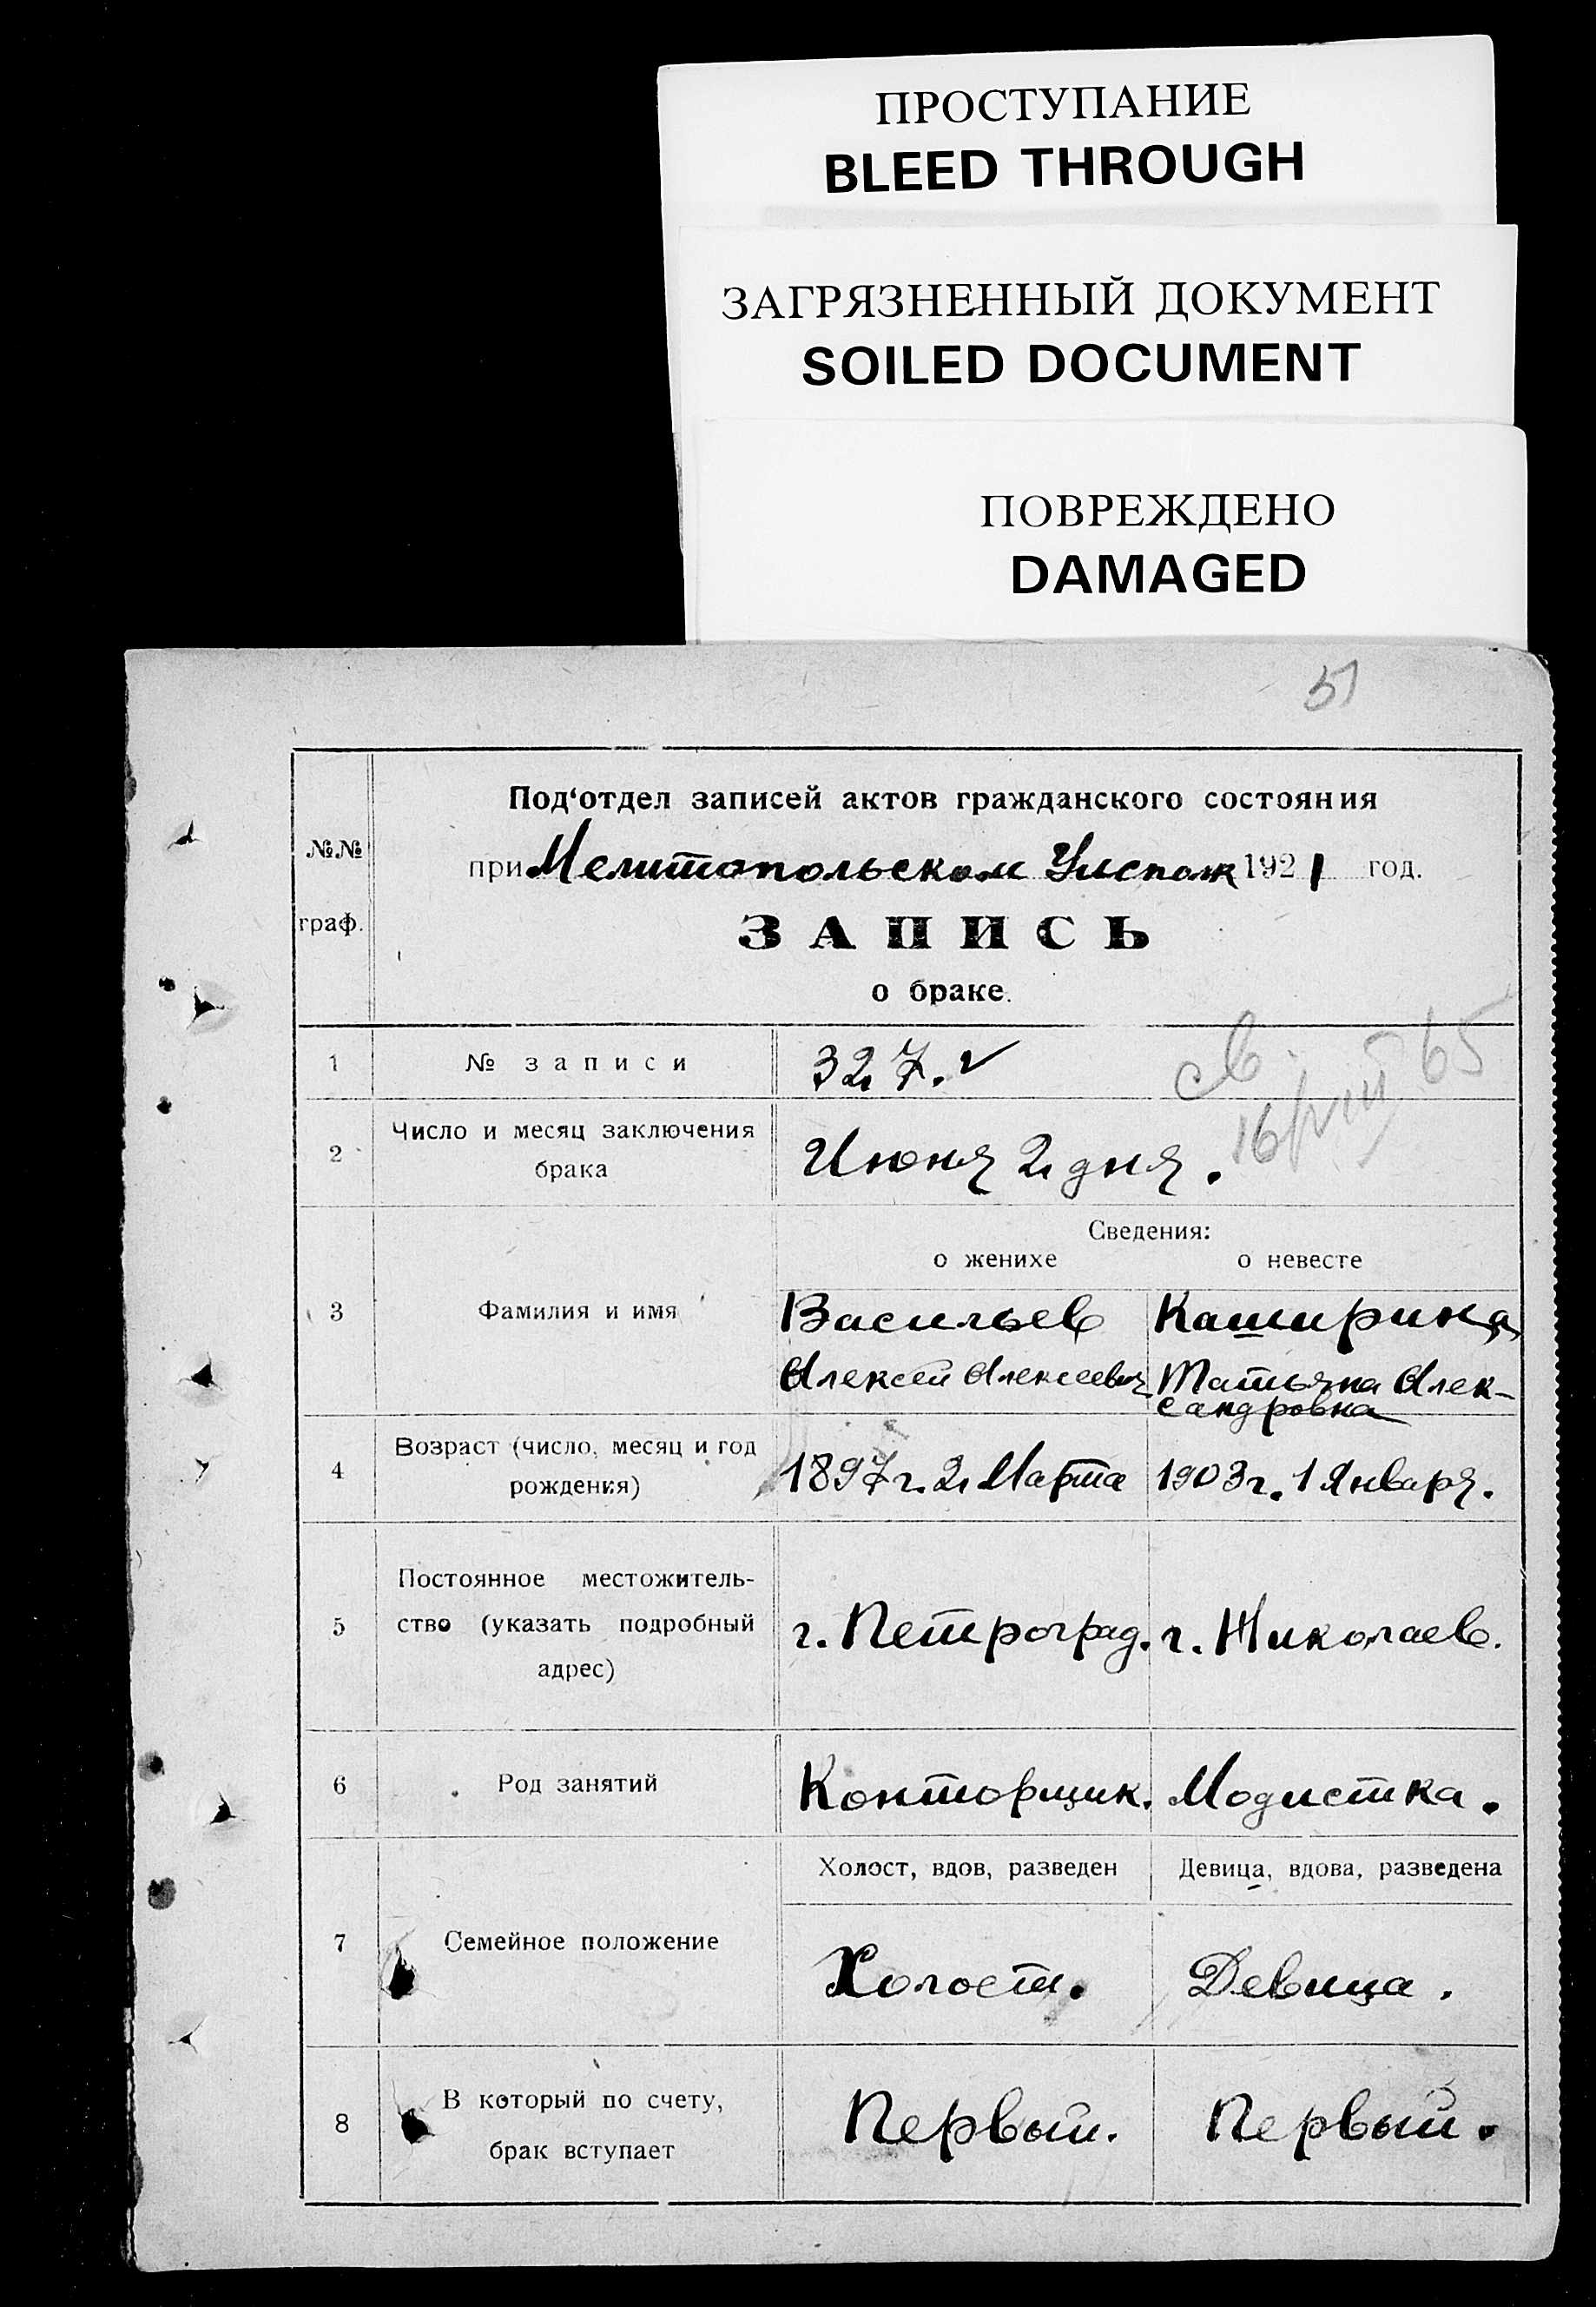 ПРОСТУПАНИЕ
BLEED THROUGH
ЗАГРЯЗНЕННЫЙ ДОКУМЕНТ
SOILED DOCUMENT
ПОВРЕЖДЕНО
DAMAGED
51
№№
граф.
Под‘отдел записей актов гражданского состояния
при Мелитопольском 1921 год.
ЗАПИСЬ
о браке.
1 № записи 327.
св. 65
2 Число и месяц заключения
брака
Июня 2 дня.
16/VIII
Сведения:
о женихе о невесте
3 Фамилия и имя
Васильев Каширина
Алексей Алексеевич Татьяна Алек-
сандровна
4 Возраст (число, месяц и год
рождения)
1897 г. 2 Марта 1903 г. 1 Января.
5 Постоянное местожитель-
ство (указать подробный
адрес)
г. Петроград. г. Николаев.
6 Род занятий Конторщик. Модистка.
Холост, вдов, разведен Девица, вдова, разведена
7 Семейное положение Холост. Девица.
8 В который по счету,
брак вступает
Первый. Первый.